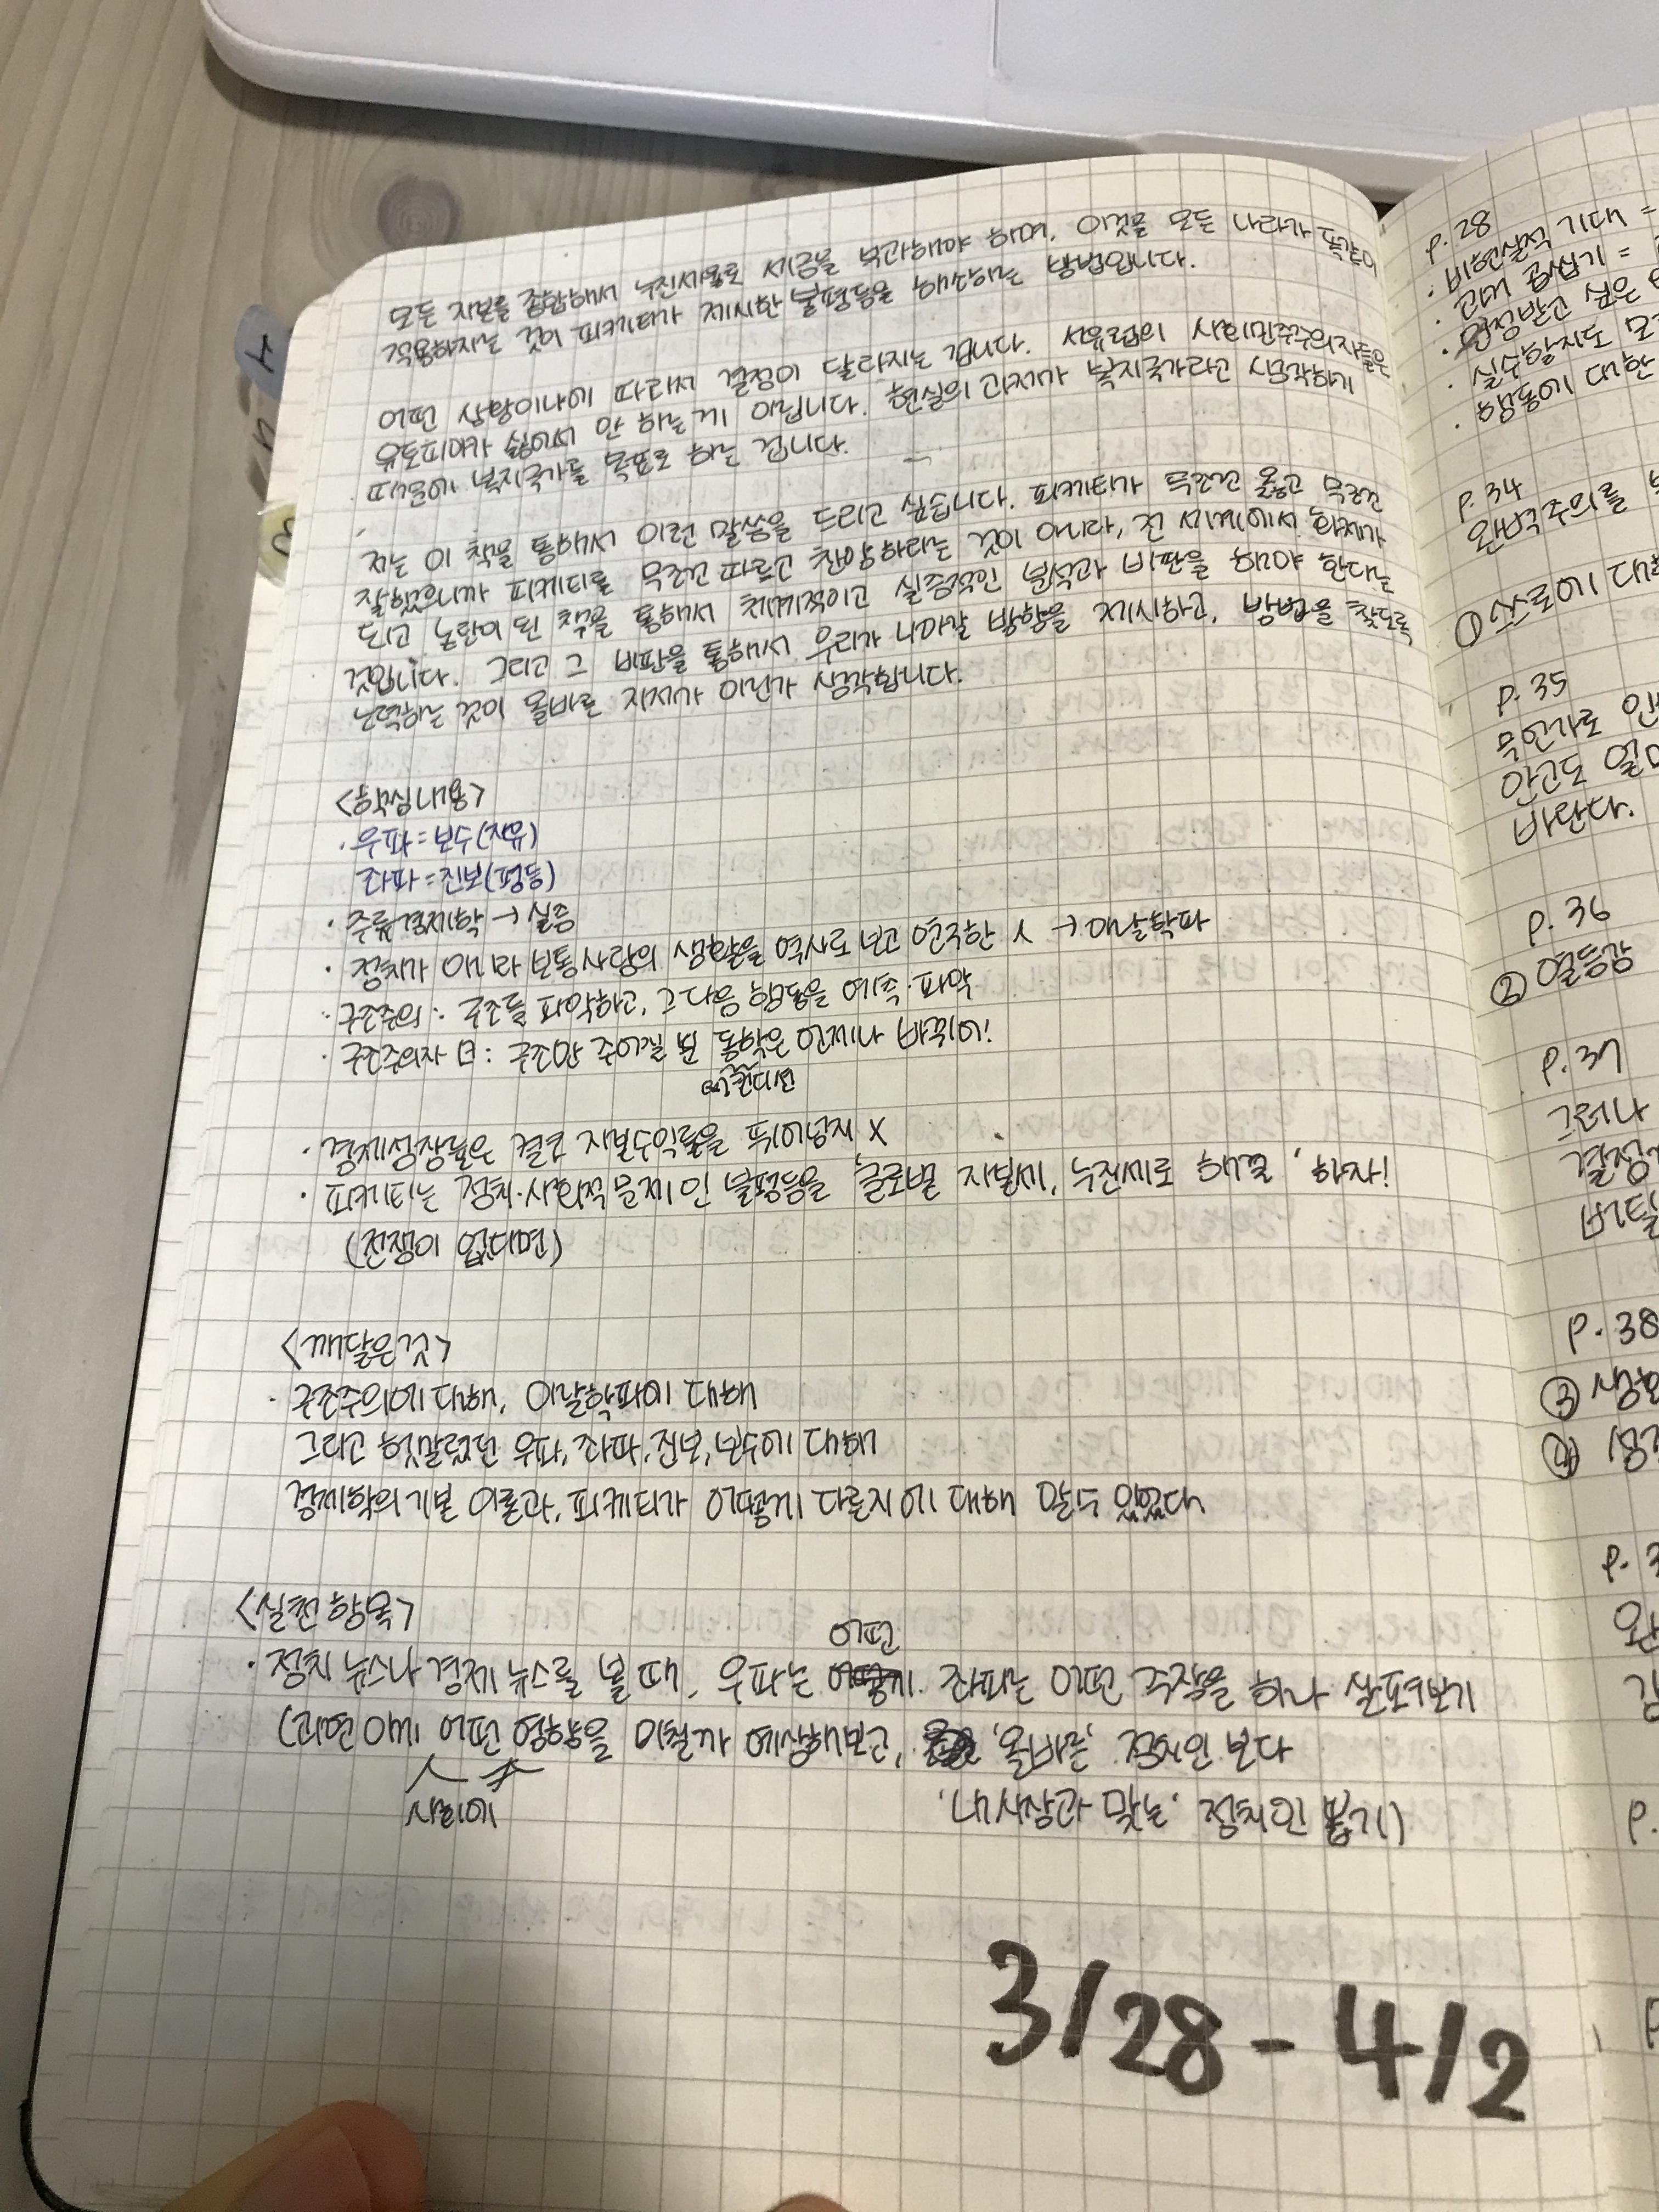 모든 자본을 종합해서 누진세율로 세금을 부과해야 하며, 이것을 모든 나라가 똑같이
적용하자는 것이 피케티가 제시한 불평등을 해소하는 방법입니다.
어떤 상황이냐에 따라서 결정이 달라지는 겁니다. 서유럽의 사회민주주의자들은
유토피아가 싫어서 안 하는 게 아닙니다. 현실의 과제가 복지국가라고 생각하기
때문에 복지국가를 목표로 하는 겁니다.
저는 이 책을 통해서 이런 말씀을 드리고 싶습니다. 피케티가 무조건 옳고 무조건
잘했으니까 피케티를 무조건 따르고 찬양하라는 것이 아니라, 전 세계에서 화제가
되고 논란이 된 책을 통해서 체계적이고 실증적인 분석과 비판을 해야 한다는
것입니다. 그리고 그 비판을 통해서 우리가 나아갈 방향을 제시하고, 방법을 찾도록
노력하는 것이 올바른 자세가 아닌가 생각합니다.
<핵심내용>
· 우파=보수(자유)
좌파=진보(평등)
· 주류경제학→실증
· 정치가 아니라 보통사람의 생활을 역사로 보고 연구한 人→아날학파
· 구조주의: 구조를 파악하고, 그다음 행동을 예측·파악
· 구조주의자 曰: 구조만 주어질 뿐 동학은 언제나 바뀌어!
· 경제성장률은 결코 자본수익률을 뛰어넘지 X
· 피케티는 정치·사회적 문제인 불평등을 '글로벌 자본세, 누진세로 해결' 하자!
(전쟁이 없다면)
<깨달은것>
· 구조주의에 대해, 아날학파에 대해
그리고 헷갈렸던 우파,좌파,진보,보수에 대해
경제학의 기본 이론과, 피케티가 어떻게 다른지에 대해 알수 있었다
<실천항목>
어떤
· 정치 뉴스나 경제 뉴스를 볼 때, 우파는 좌파는 어떤 주장을 하나 살펴보기
(과연 어떤 영향을 미칠까 예상해보고, '올바른' 정치인 보다
사회에
'내사상과 맞는' 정치인 뽑기)
3/28-4/2
P.28
· 비현실적 기대 =
· 곱씹기 =
· 인정받고 싶은
· 실수할지도
· 행동에 대한
P.34
완벽주의를
① 스스로에 대
P.35
무언가로
안고도
바란다.
P.36
② 열등감
P.37
그러나
결정
P.38
③
④
P.3
P.